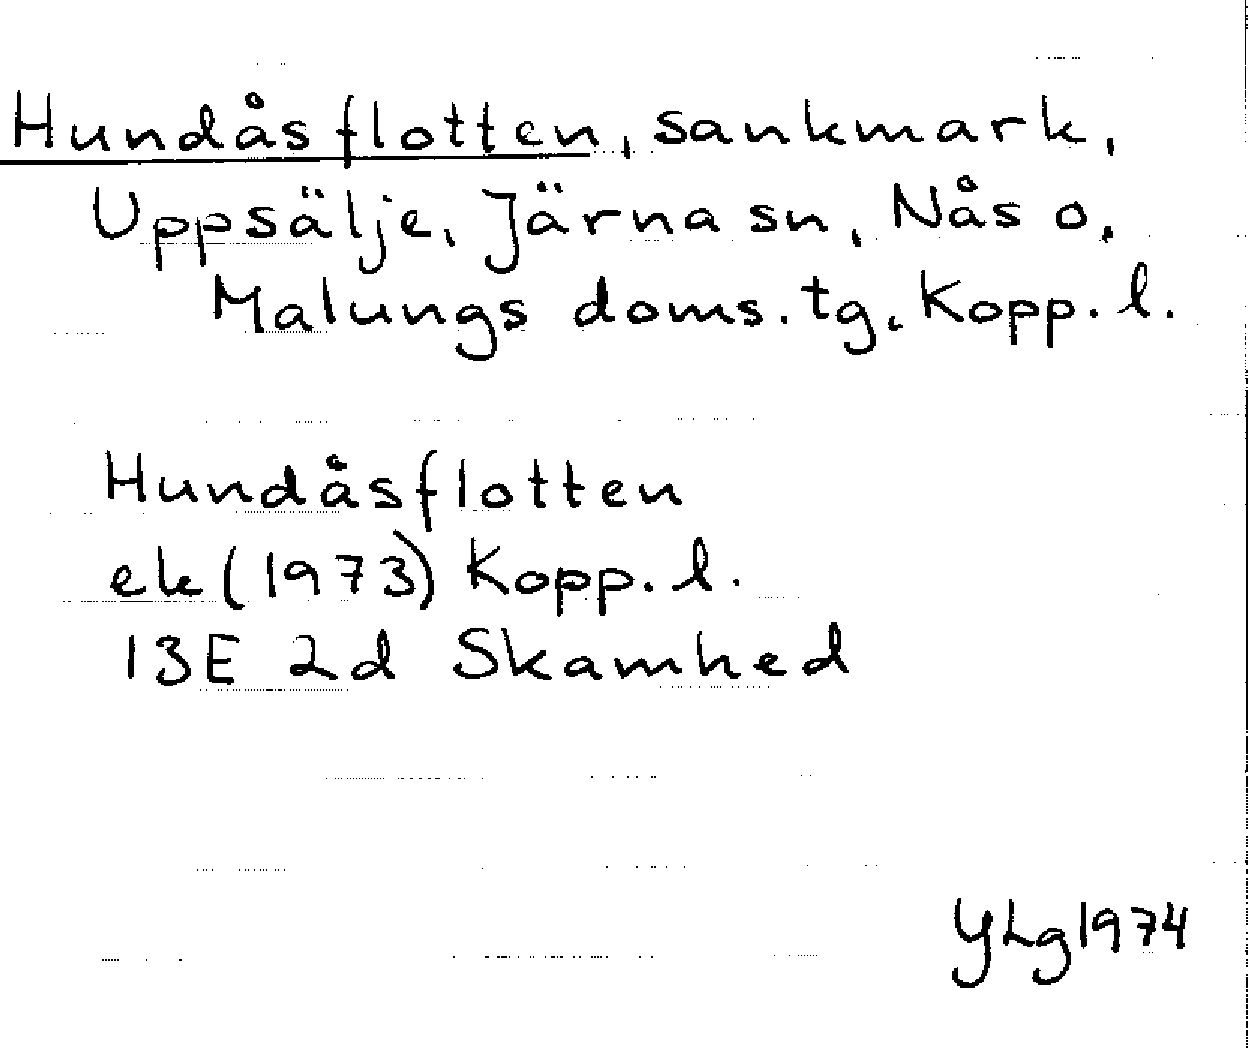 Hundåsflotten, sankmark,
Uppsälje, Järna sn, Nås o,
Malungs doms.tg, Kopp.l.
Hundåsflotten
ek (1973) Kopp.l.
13E 2d Skamhed
YLg 1974